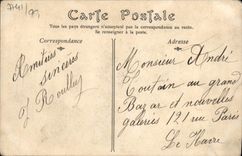 Carte Postale
Tous les pays étrangers n'acceptent pas la correspondance au verso.
Se renseigner à la poste.
Correspondance
Adresse
Amitiés
sincères
J Roulley
Monsieur André
Toutain au grand
Bazar et nouvelles
galeries 121 rue Paris
Le Havre